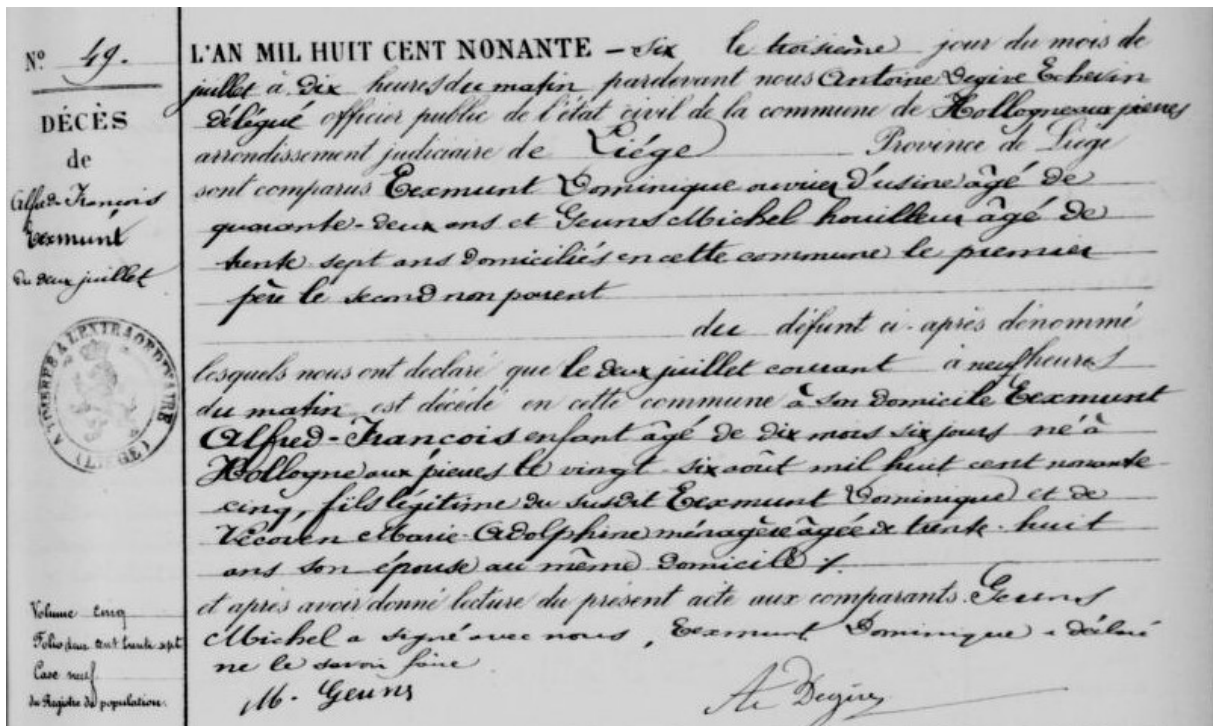 Nº 49.
DÉCÈS
de
Alfred-François
Eexmunt
Du deux juillet
A TIMBRER A L'EXTRAORDINAIRE
(LIÉGE)
Volume cinq
Folio deux cent trente sept
Case neuf
du Registre de population.
L'AN MIL HUIT CENT NONANTE - six le troisième jour du mois de
juillet à dix heures du matin pardevant nous Antoine Degive Echevin
délégué officier public de l'état civil de la commune de Hollogne aux pierres
arrondissement judiciaire de Liége Province de Liége
sont comparus Eexmunt Dominique ouvrier d'usine âgé de
quarante-deux ans et Geuns Michel houilleur âgé de
trente sept ans domiciliés en cette commune le premier
père le second non parent
du défunt ci-après dénommé
lesquels nous ont declaré que le deux juillet courant à neuf heures
du matin est décédé en cette commune à son domicile Eexmunt
Alfred-François enfant âgé de dix mois six jours né à
Hollogne aux pierres le vingt-six août mil huit cent nonante-
cinq, fils légitime du susdit Eexmunt Dominique et de
Vécoven Marie-Adolphine ménagère âgée de trente-huit
ans son épouse au même domicile
et après avoir donné lecture du présent acte aux comparants. Geuns
Michel a signé avec nous, Eexmunt Dominique a déclaré
ne le savoir faire
M. Geuns
A Degive